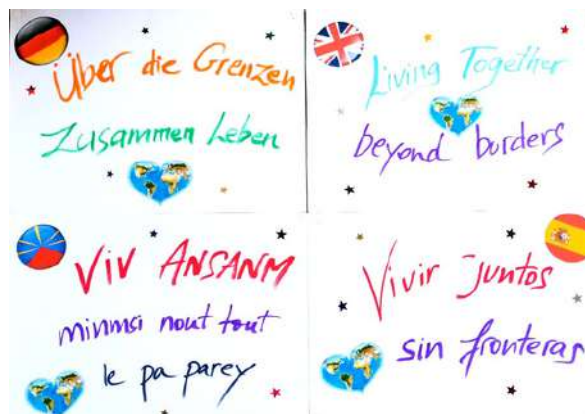 Über die Grenzen
Zusammen Leben
Living Together
beyond borders
Viv ANSANM
minmsi nout tout
le pa parey
Vivir juntos
sin fronteras